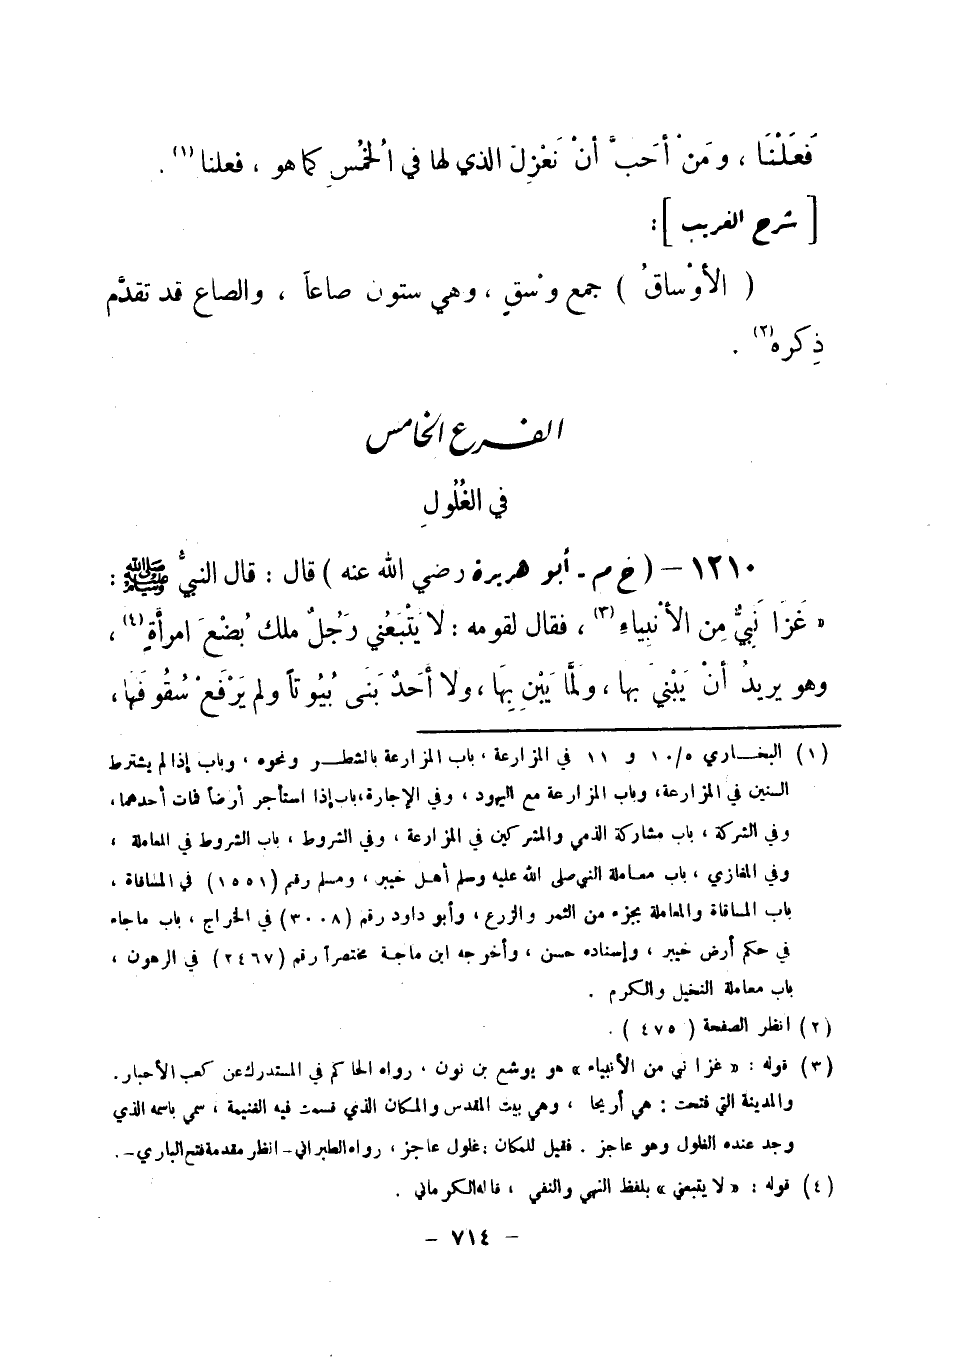 فَعَلْنَا ، ومَنْ أحَبَّ أنْ نَعْزِلَ الذي لها في الْخُمُسِ كما هو ، فعلنا (١) .
[ شرح الغريب ] :
( الأوْساقُ ) جمع وسْقٍ ، وهي ستون صاعاً ، والصاع قد تقدَّم
ذِكره (٢) .
الفرع الخامس
في الغُلُولِ
١٢١٠ – ( خ م - أبو هريرة رضي الله عنه ) قال : قال النبيُّ ﷺ :
« غَزَا نَبيٌّ مِن الأنْبِياءِ (٣) ، فقال لقومه : لا يَتْبَعُني رَجُلٌ ملك بُضْعَ امرأَةٍ (٤) ،
وهو يريدُ أنْ يَبْنيَ بها ، ولَمَّا يَبْنِ بِهَا ، ولا أَحَدٌ بَنَى بُيُوتاً ولم يَرْفَعْ سُقُوفَهَا ،
(١) البخاري ٥/١٠ و ١١ في المزارعة ، باب المزارعة بالشطر ونحوه ، وباب إذا لم يشترط
السنين في المزارعة ، وباب المزارعة مع اليهود ، وفي الإجارة ، باب إذا استأجر أرضاً فمات أحدهما ،
وفي الشركة ، باب مشاركة الذمي والمشركين في المزارعة ، وفي الشروط ، باب الشروط في المعاملة ،
وفي المغازي ، باب معاملة النبي صلى الله عليه وسلم أهل خيبر ، ومسلم رقم (١٥٥١) في المساقاة ،
باب المساقاة والمعاملة بجزء من الثمر والزرع ، وأبو داود رقم (٣٠٠٨) في الخراج ، باب ماجاء
في حكم أرض خيبر ، وإسناده حسن ، وأخرجه ابن ماجة مختصراً رقم (٢٤٦٧) في الرهون ،
باب معاملة النخيل والكرم .
(٢) انظر الصفحة ( ٤٧٥ ) .
(٣) قوله : « غزا نبي من الأنبياء » هو يوشع بن نون ، رواه الحاكم في المستدرك عن كعب الأحبار .
والمدينة التي فتحت : هي أريحا ، وهي بيت المقدس والمكان الذي قسمت فيه الغنيمة ، سمي باسمه الذي
وجد عنده الغلول وهو عاجز . فقيل للمكان : غلول عاجز ، رواه الطبراني – انظر مقدمة فتح الباري – .
(٤) قوله : « لا يتبعني » بلفظ النهي والنفي ، قاله الكرماني .
– ٧١٤ –